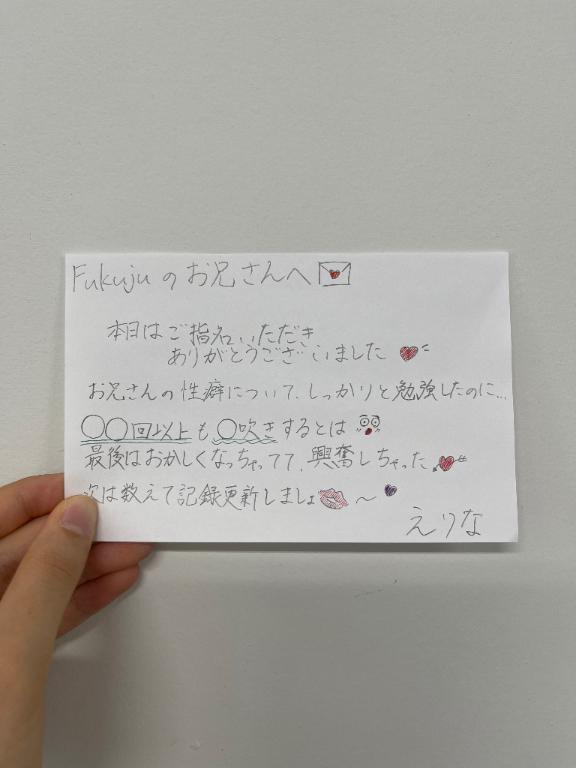 Fukujuのお兄さんへ
本日はご指名いただき
ありがとうございました
お兄さんの性癖について、しっかりと勉強したのに...
〇〇回以上も〇吹きするとは
最後はおかしくなっちゃってて、興奮しちゃった
次は数えて記録更新しましょ〜
えりな